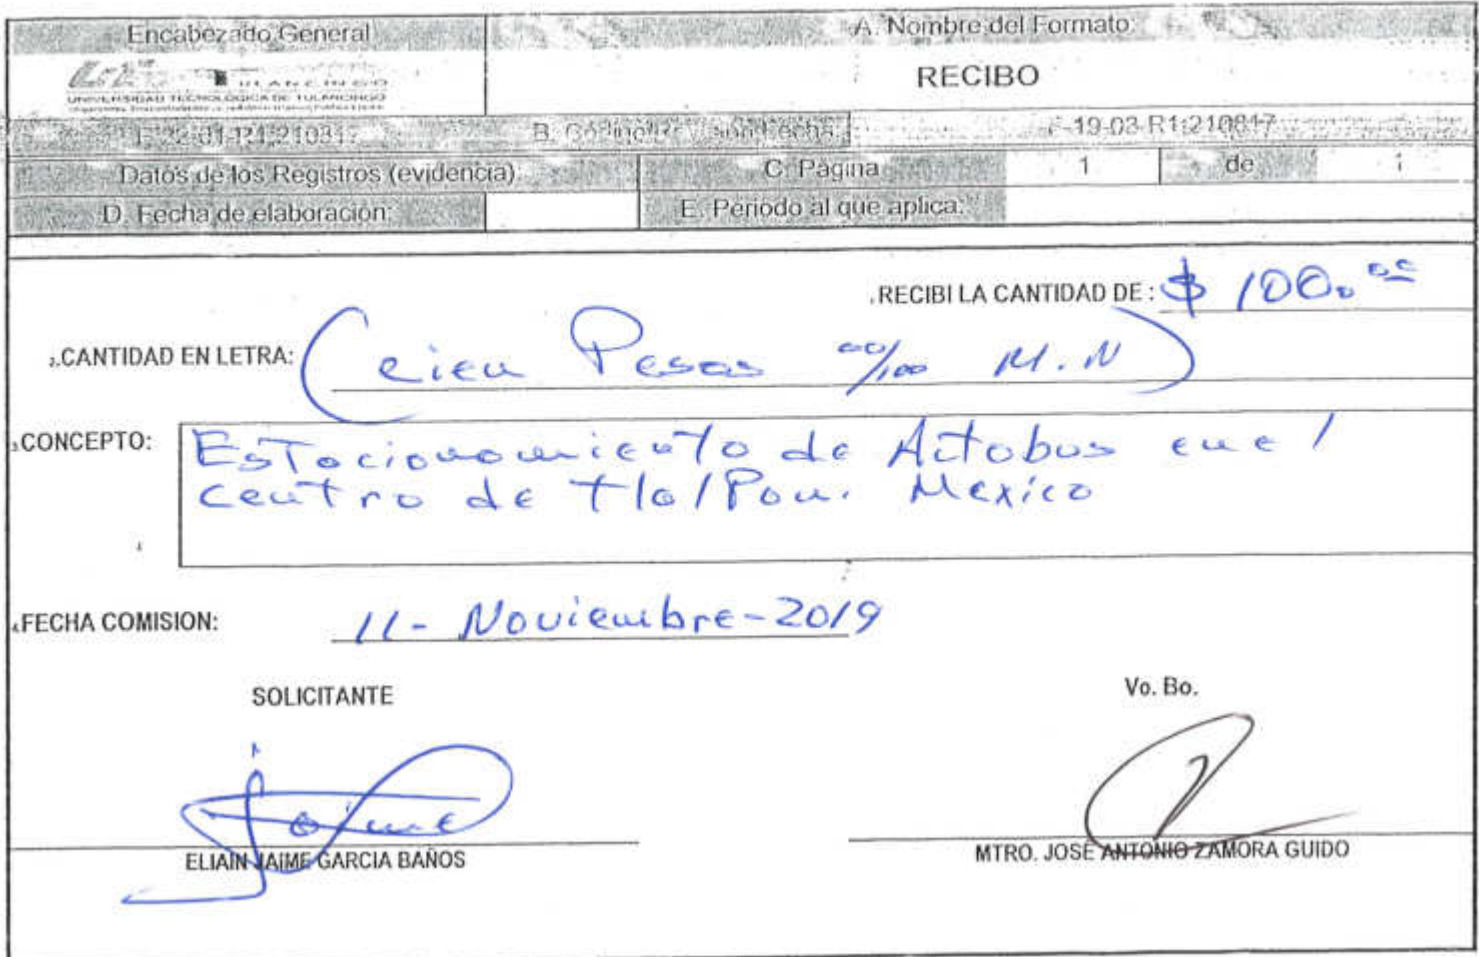 Encabezado General
A. Nombre del Formato
UNIVERSIDAD TECNOLOGICA DE TULANCINGO
RECIBO
F-19-03-R1;210817
Datos de los Registros (evidencia)
C. Página
1
de
1
D. Fecha de elaboración:
E. Periodo al que aplica:
1.RECIBI LA CANTIDAD DE : $ 100.00
2.CANTIDAD EN LETRA: (cien Pesos 00/100 M.N)
3.CONCEPTO: Estacionamiento de Actobus en el
centro de tlalPan. Mexico
4.FECHA COMISION: 11- Noviembre-2019
SOLICITANTE
Vo. Bo.
Jaime
ELIAIN JAIME GARCIA BAÑOS
MTRO. JOSÉ ANTONIO ZAMORA GUIDO